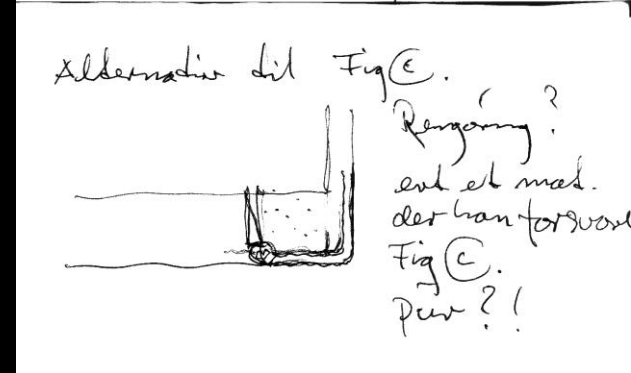 Alternativ til Fig C.
Rengøring?
evt et mat.
der kan forsvare
Fig C.
Pur?!